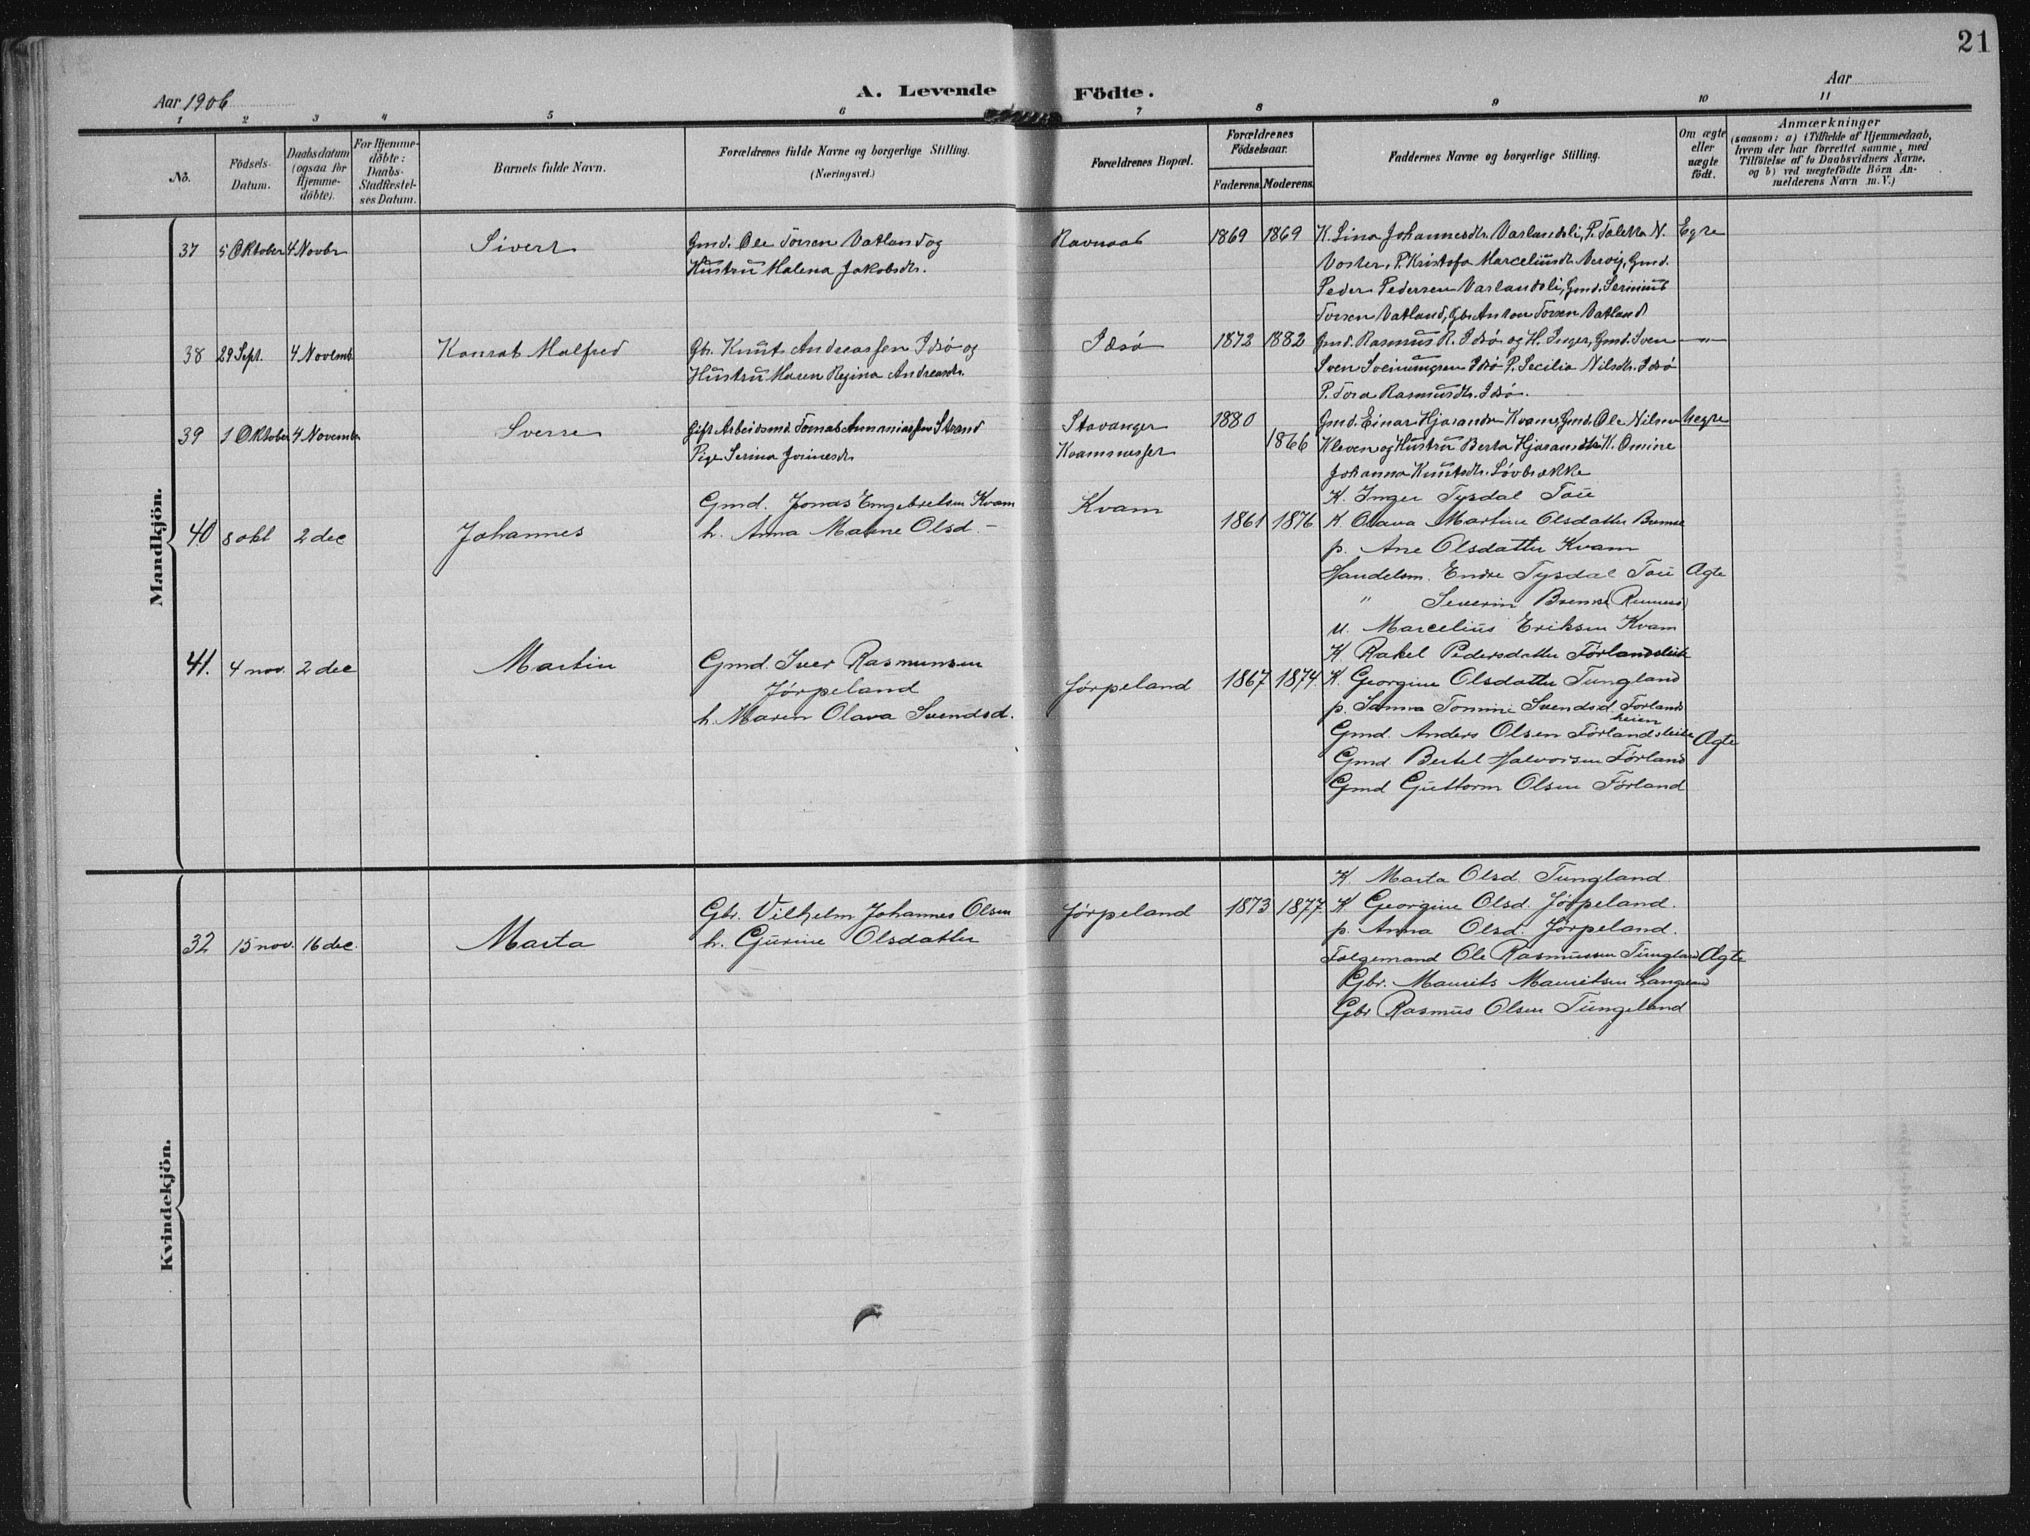 21
Aar 1906
A. Levende Födte.
Aar
1 2 3 4 5 6 7 8 9 10 11
No.
Födsels-
Datum.
Daabsdatum
(ogsaa for
Hjemme-
døbte).
For Hjemme-
døbte:
Daabs-
Stadfæstel-
ses Datum.
Barnets fulde Navn.
Forældrenes fulde Navne og borgerlige Stilling.
(Næringsvei.)
Forældrenes Bopæl.
Forældrenes
Födselsaar.
Faderens. Moderens.
Faddernes Navne og borgerlige Stilling.
Om ægte
eller
uægte
født.
Anmærkninger
(saasom: a) i Tilfælde af Hjemmedaab,
hvem der har forrettet samme, med
Tilføielse af to Daabsvidners Navne.
og b) ved uægtefødte Börn An-
melderens Navn m. V.)
Mandkjön.
37 5 Oktober 4 Novbr Sivert
Gmd. Ole Torsen Vatland og
Hustru Malena Jakobsdtr.
1869 1869
K. Lina Johannesdtr. Vatlandsli, P. Taletta N.
Voster, P. Kristofa Marceliusdtr. Nervig, Gmd.
Peder Pedersen Vatlandsli, Gmd.
Torsen Vatland, Gbr. Anton Torsen Vatland
Egte
38 29 Sept. 4 Novemb. Konrad Malfred
Gbr. Knut Andreassen Idsø og
Hustru Maren Regina Andreasdtr.
Idsø
1872 1882
Gmd. Rasmus R. Idsø og H. Inger, Gmd. Sven
Sven Idsø P. Secilia Nilsdtr. Idsø
P. Tora Rasmusdtr. Idsø.
—"—
39 1 Oktober 4 November Sverre
Gift Arbeidsmd. Tomas Ananiassen Strand
Pige Serina
Stavanger
Kvamsnesset
1880
1866
Gmd. Einar Hjorandsn Kvam, Gmd. Ole Nilsen
Kleven og Hustru Berta Hjorandsdtr. K. Omine
Johanna Knutsdtr. Løvbrække
Uegte
40 8 okt 2 dec Johannes
Gmd. Jonas Engebretsen Kvam
h. Anna Malene Olsd –
Kvam
1861 1876
K. Inger Tysdal Tou
K Olava Martine Olsdatter Bremse
p. Ane Olsdatter Kvam
Handelsm. Endre Tysdal Tou
" Severin Bremse
u. Marcelius Eriksen Kvam
Ægte
41. 4 nov. 2 dec Martin
Gmd. Iver Rasmussen
Jørpeland
h. Maren Olava Svendsd.
Jørpeland
1867 1874
K Rakel Pedersdatter Førlandsleite
K. Georgine Olsdatter Tungland
p. Sanna Tomine Svendsd. Førlands
heien
Gmd. Anders Olsen Førlandsleite
Gmd Bertel Halvorsen Førland
Gmd Guttorm Olsen Førland
Ægte
Kvindekjön.
32 15 nov. 16 dec. Marta
Gbr. Vilhelm Johannes Olsen
h. Gurine Olsdatter
Jørpeland
1873 1877
K. Marta Olsd. Tungland
K Georgine Olsd. Jørpeland.
p. Anna Olsd. Jørpeland.
Følgemand Ole Rasmussen Tungland
Gbr. Maurits Mauritsen Langeland
Gbr Rasmus Olsen Tungeland
Ægte